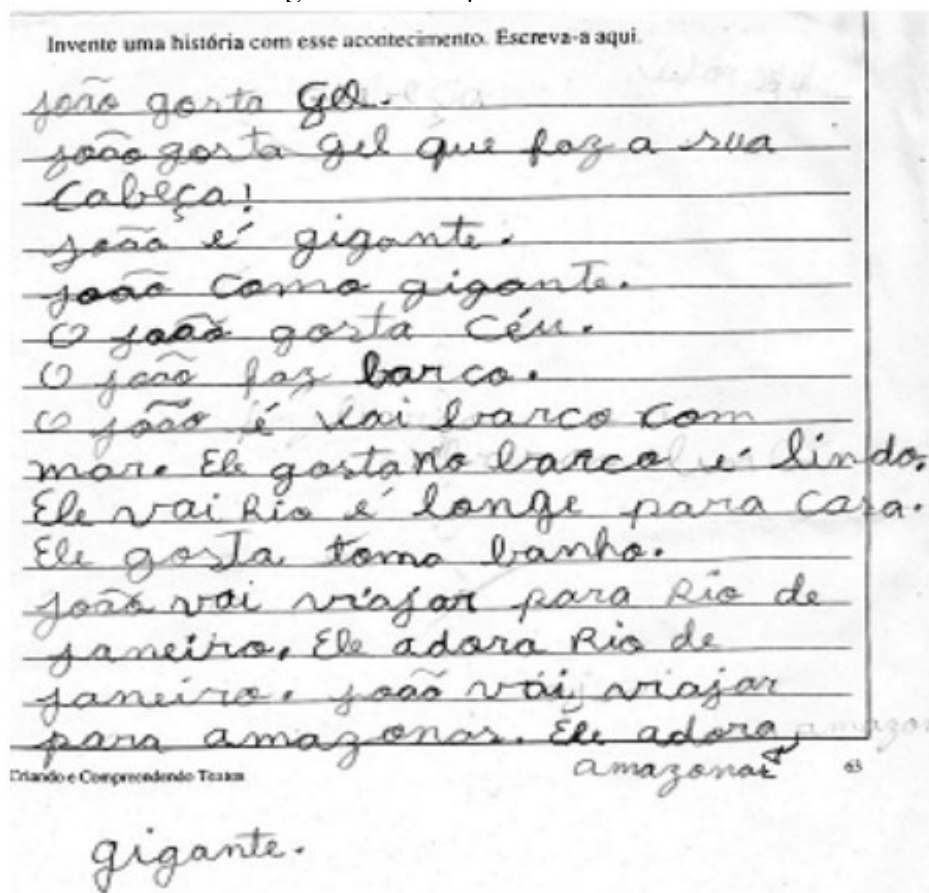 Invente uma história com esse acontecimento. Escreva-a aqui.
joão gosta Gel.
joão gosta gel que faz a sua
Cabeça!
joão é gigante.
joão como gigante.
O joão gosta céu.
O joão faz barco.
O joão é vai barco com
mar. Ele gosta no barco é lindo.
Ele vai Rio é longe para casa.
Ele gosta toma banho.
joão vai viajar para Rio de
janeiro. Ele adora Rio de
janeiro. joão vai viajar
para amazonas. Ele adora
amazonas
Criando e Compreendendo Textos 63
gigante.